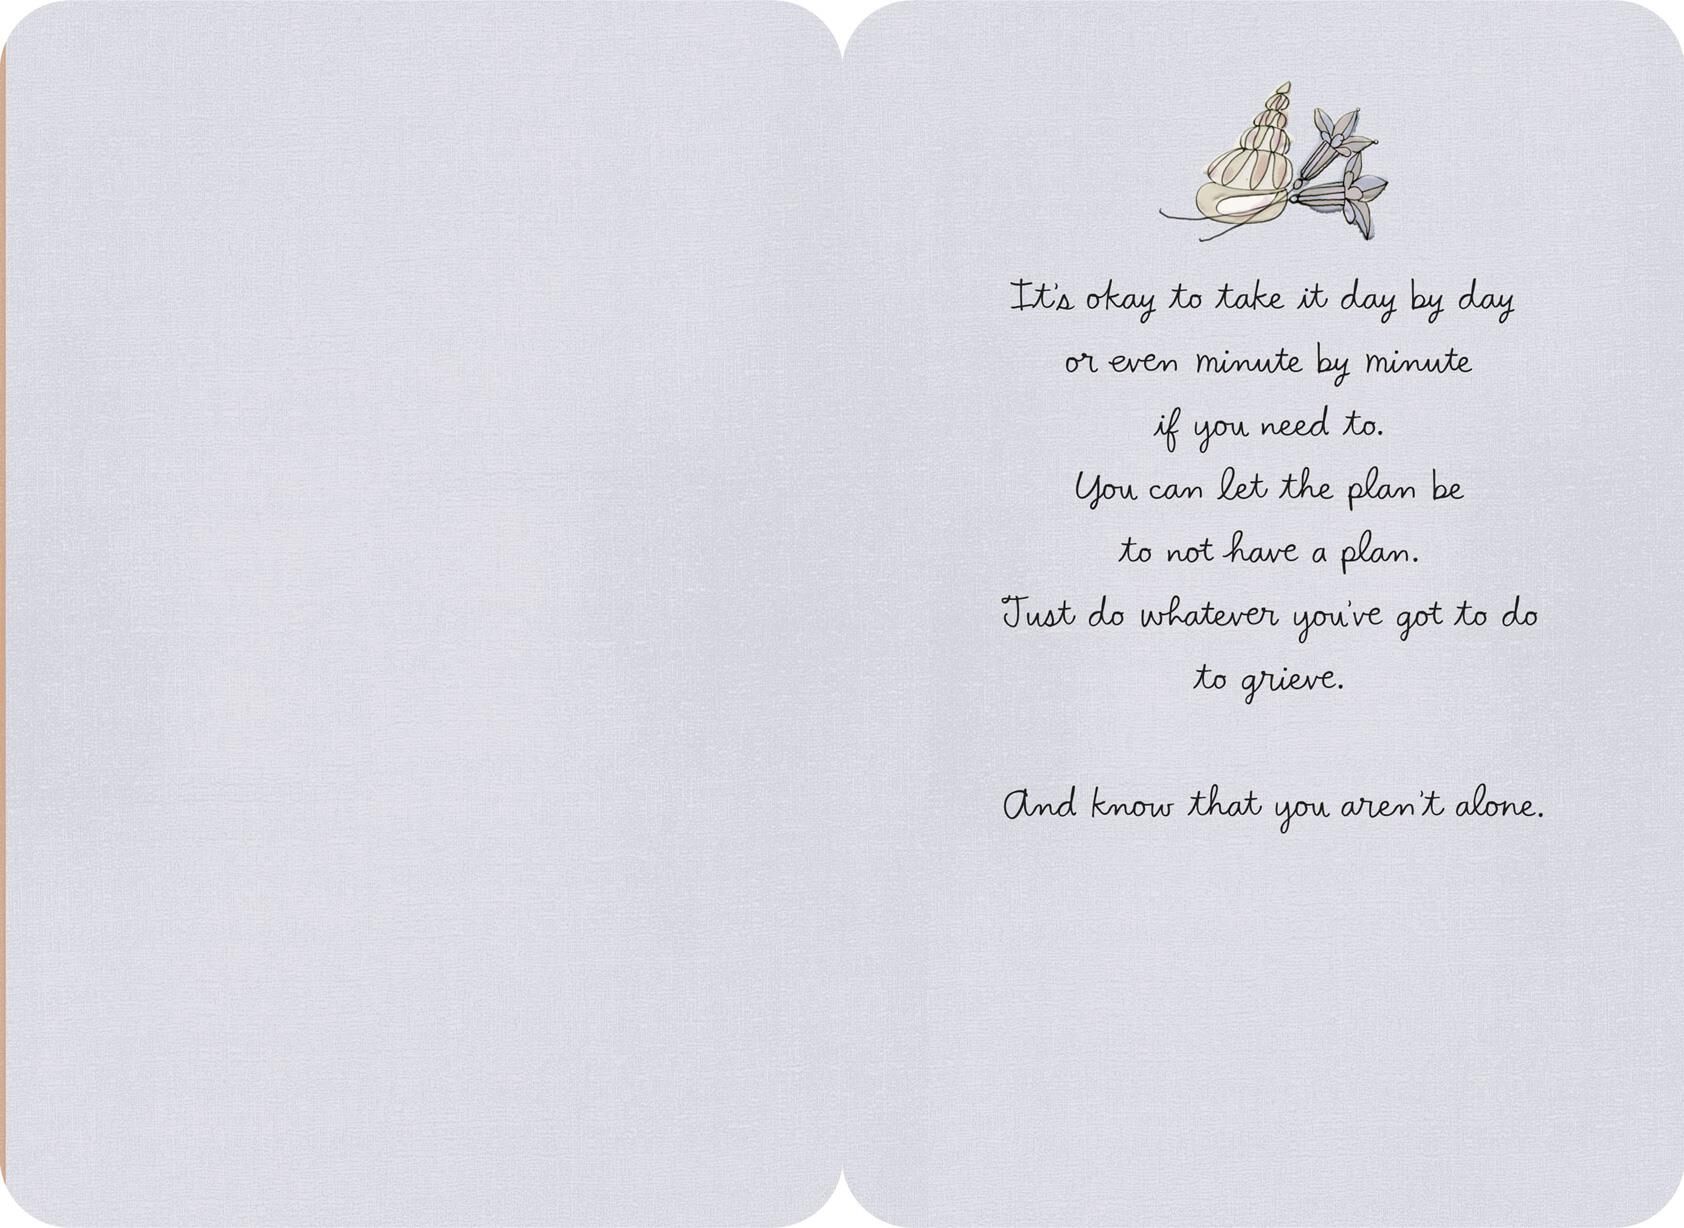 It's okay to take it day by day
or even minute by minute
if you need to.
You can let the plan be
to not have a plan.
Just do whatever you've got to do
to grieve.
And know that you aren't alone.